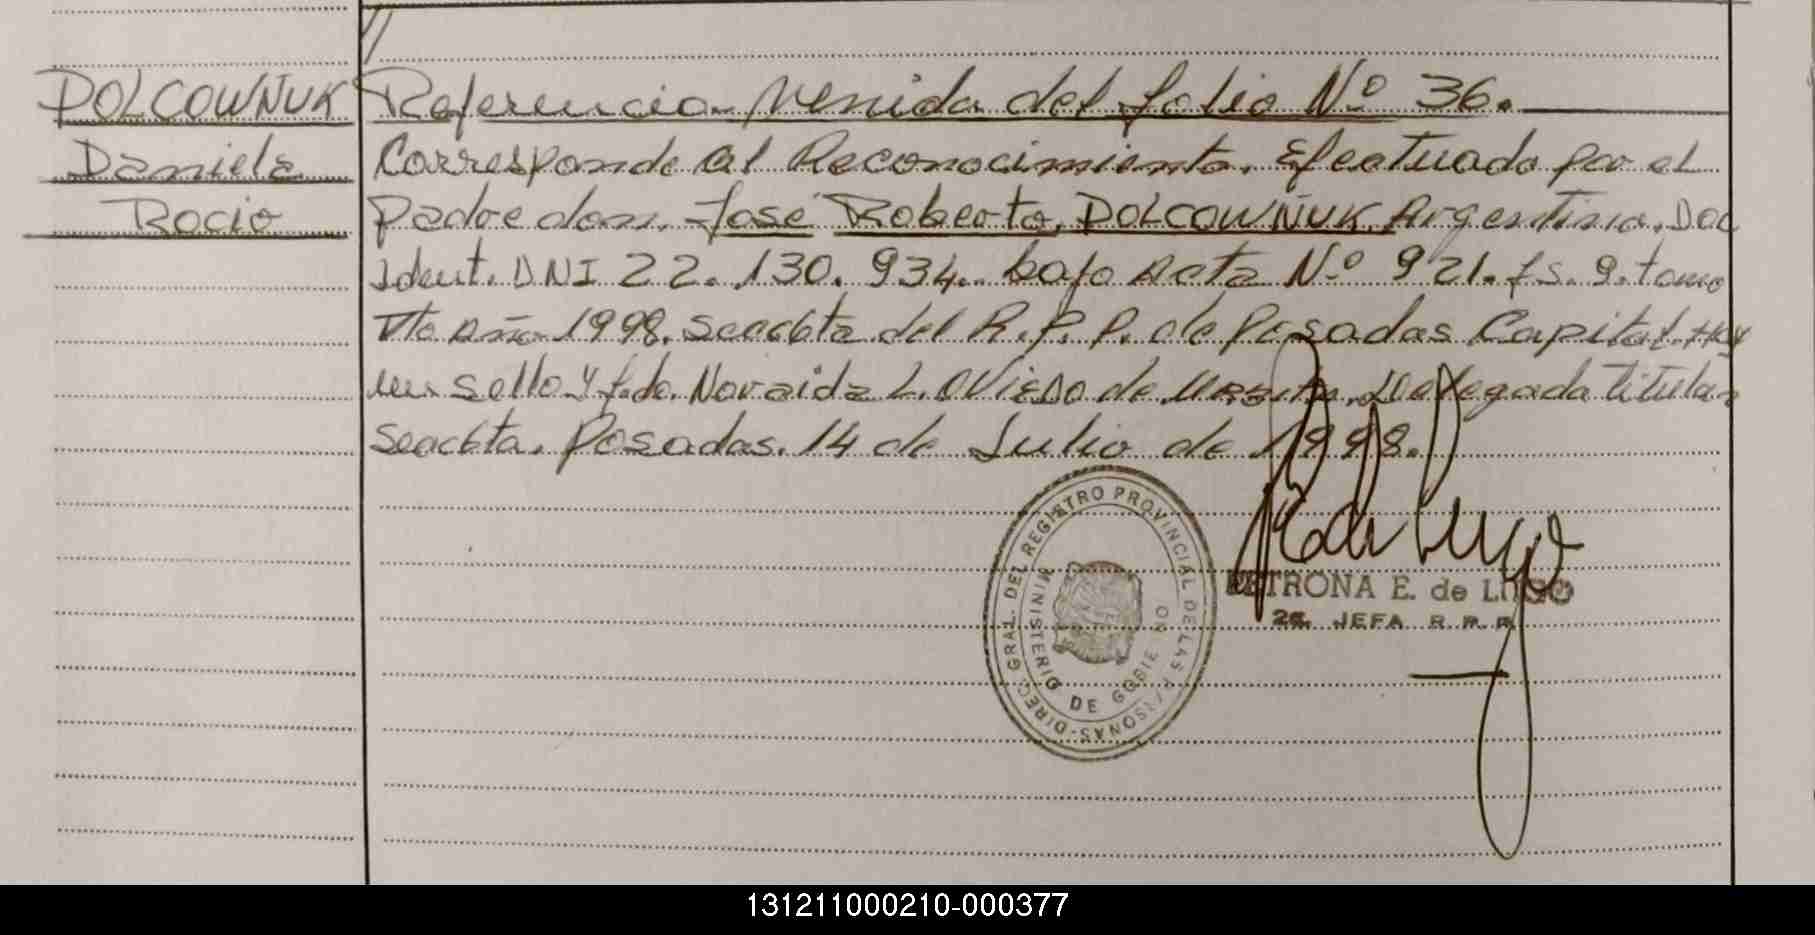 POLCOWÑUK
Daniela
Rocio
Referencia venida del folio Nº 36.
Corresponde al Reconocimiento, Efectuado por el
padre don. José Roberto, POLCOWÑUK, Argentino, Doc
Ident. DNI 22.130.934.. bajo Acta Nº 921. fs. 9. tomo
Vto Año 1998. Seccbta del R.P.P. de Posadas Capital. Hay
un sello y fdo. Noraida L. Oviedo de Delegada titular
Seccbta. Posadas. 14 de Julio de 1998.
DIREC. GRAL. DEL REGISTRO PROVINCIAL DE LAS PERSONAS
MINISTERIO DE GOBIERNO
PETRONA E. de LUGO
2a. JEFA R.P.P.
131211000210-000377